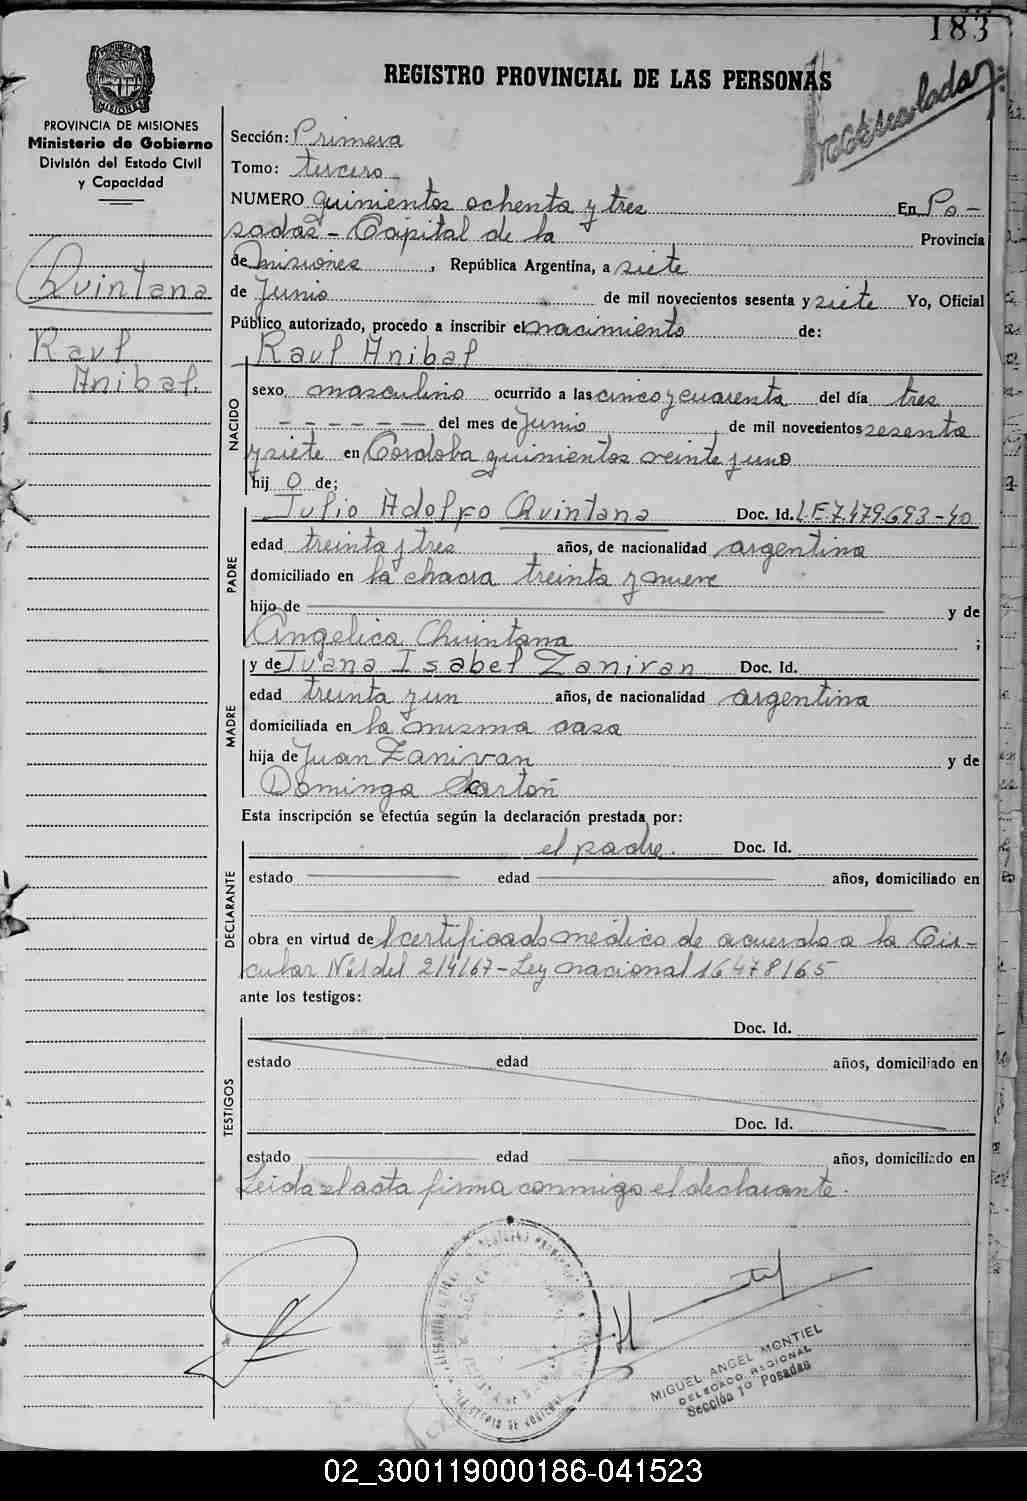 183
PROVINCIA DE MISIONES
Ministerio de Gobierno
División del Estado Civil
y Capacidad
REGISTRO PROVINCIAL DE LAS PERSONAS
Quintana
Raul
Anibal.
Sección: Primera
Tomo: tercero
NUMERO quinientos ochenta y tres En Po-
sadas - Capital de la Provincia
de Misiones , República Argentina, a siete
de Junio de mil novecientos sesenta y siete Yo, Oficial
Público autorizado, procedo a inscribir el nacimiento de:
Raul Anibal
NACIDO
sexo masculino ocurrido a las cinco y cuarenta del día tres
- - - - - - del mes de Junio , de mil novecientos sesenta
y siete en Córdoba quinientos veinte y uno
hij o de;
Julio Adolfo Quintana Doc. Id. L.E.7.479.693-40
PADRE
edad treinta y tres años, de nacionalidad argentina
domiciliado en la chacra treinta y nueve
hijo de y de
Angelica Quintana ;
MADRE
y de Juana Isabel Zanivan Doc. Id.
edad treinta y un años, de nacionalidad argentina
domiciliada en la misma casa
hija de Juan Zanivan y de
Dominga
Esta inscripción se efectúa según la declaración prestada por:
DECLARANTE
el padre. Doc. Id.
estado edad años, domiciliado en
obra en virtud del certificado médico de acuerdo a la Cir-
cular Nº1 del 2/4/67 - Ley nacional 16478/65
ante los testigos:
TESTIGOS
Doc. Id.
estado edad años, domiciliado en
Doc. Id.
estado edad años, domiciliado en
Leida el acta firma conmigo el declarante.
MIGUEL ANGEL MONTIEL
DELEGADO REGIONAL
Sección 1º Posadas
02_300119000186-041523